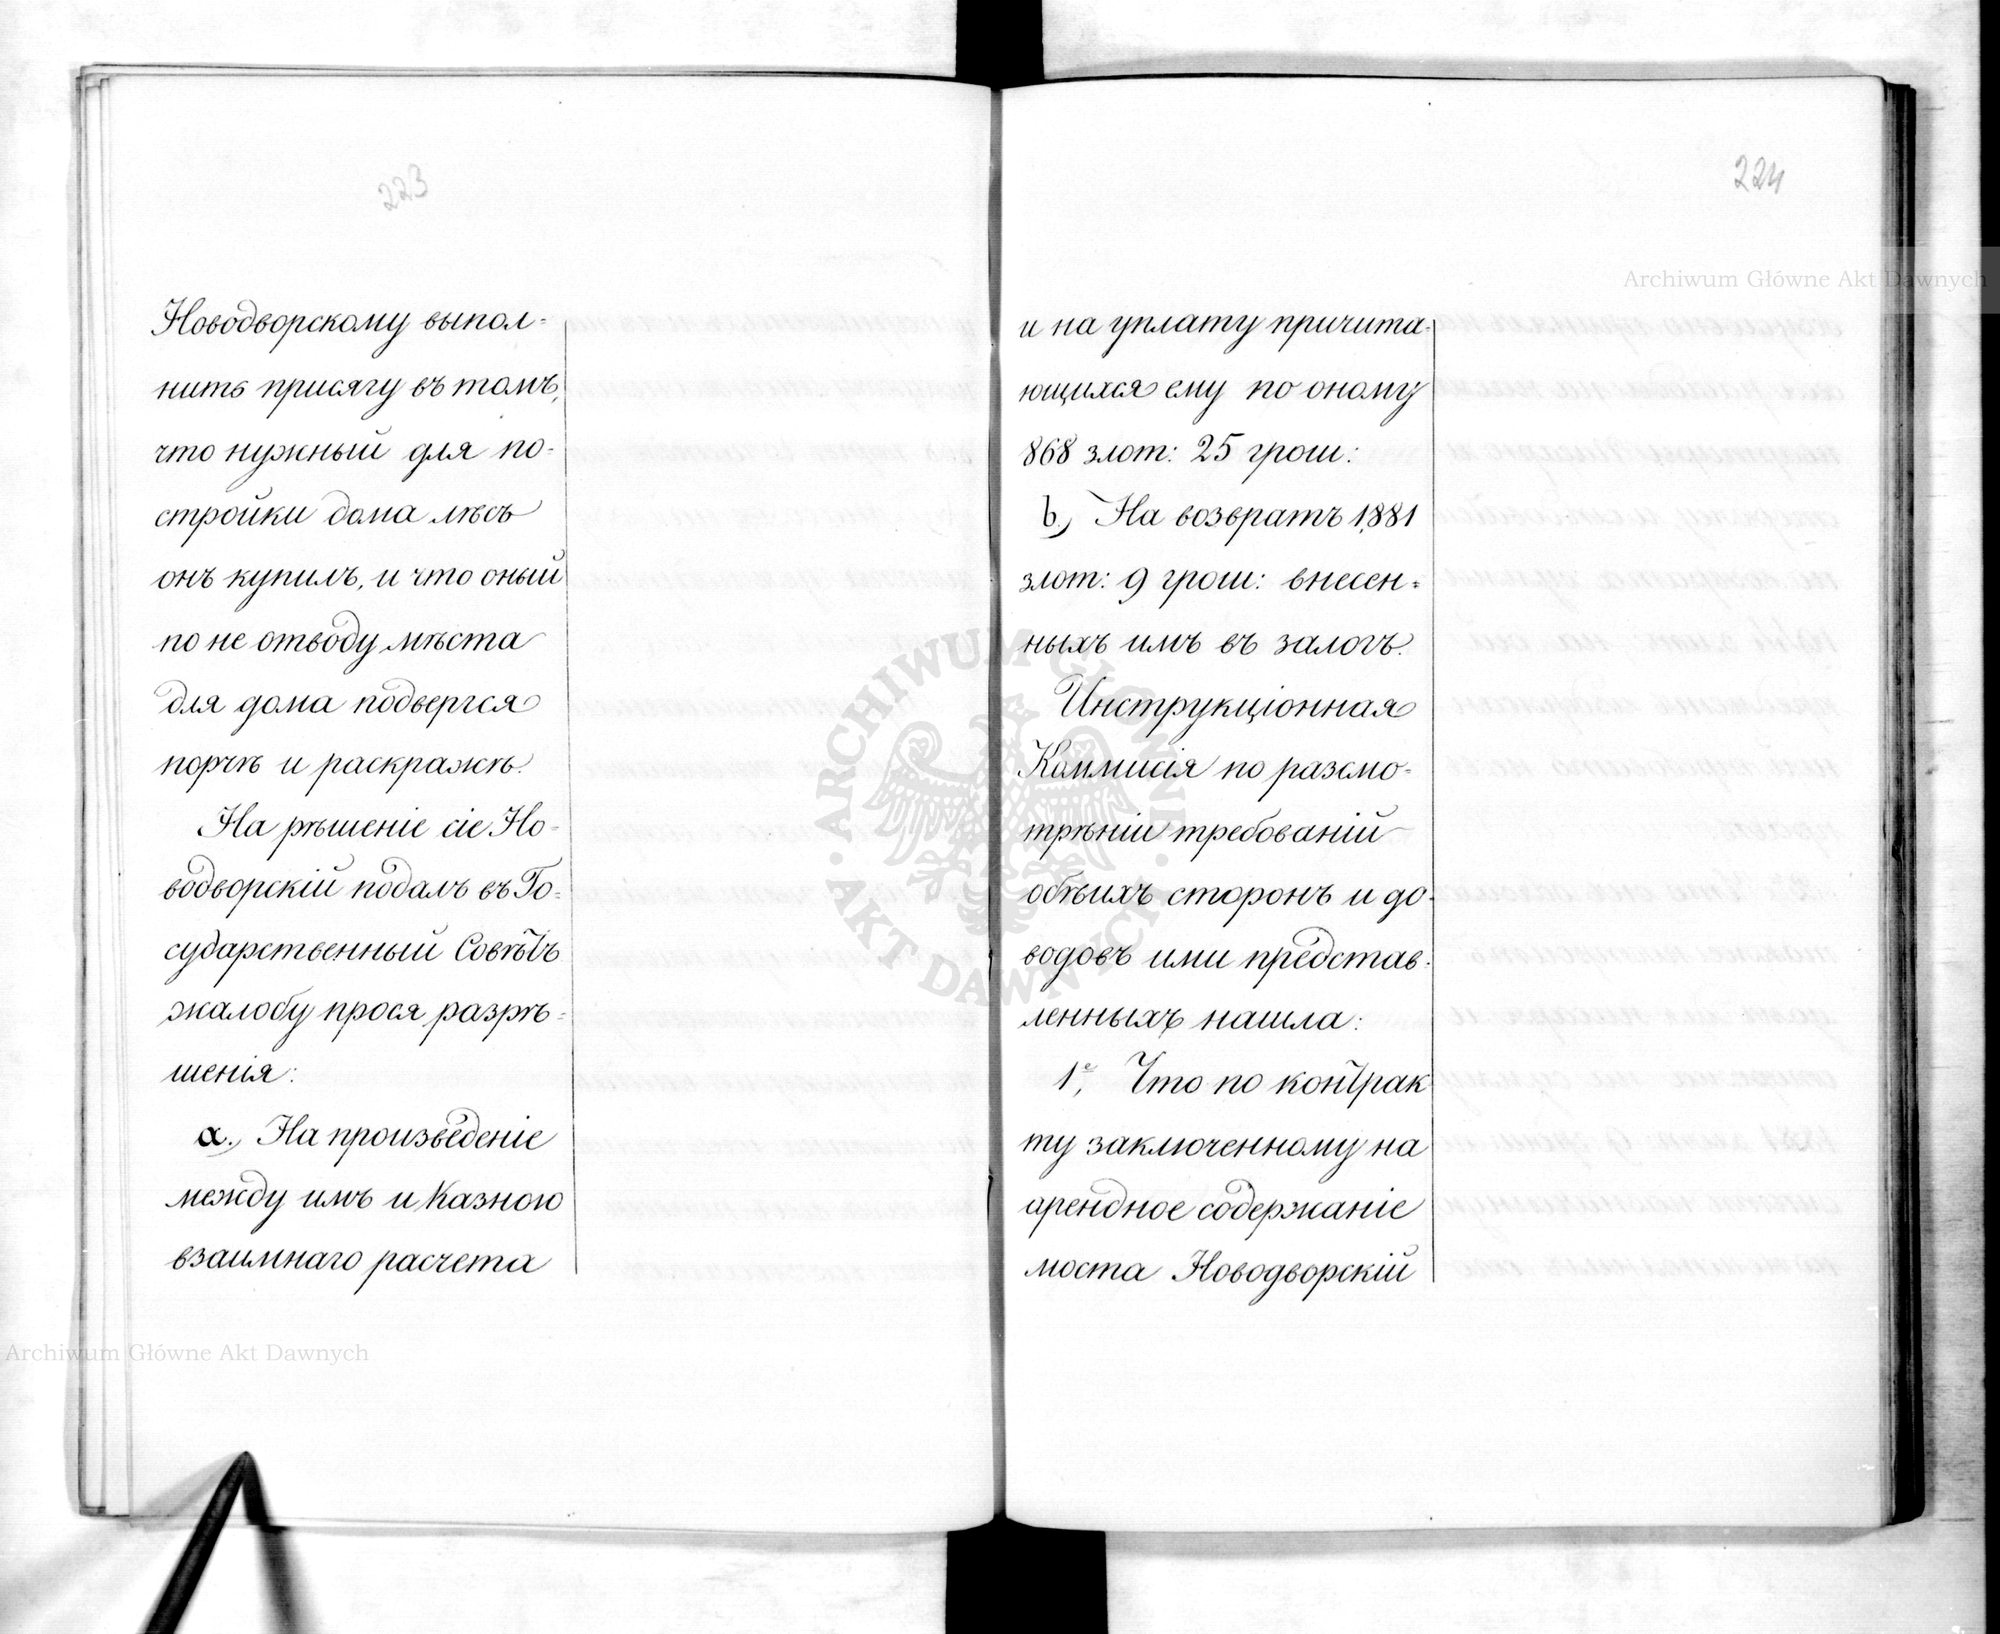 223
Новодворскому выпол-
нить присягу въ томъ,
что нужный для по-
стройки дома лѣсъ
онъ купилъ, и что оный
по не отводу мѣста
для дома подвергся
порчѣ и раскражѣ.
На рѣшеніе сіе Но-
водворскій подалъ въ Го-
сударственный Совѣтъ
жалобу прося разрѣ-
шенія:
a., На произведеніе
между имъ и Казною
взаимнаго расчета
224
и на уплату причита-
ющихся ему по оному
868 злот: 25 грош:
b., На возвратъ 1,881
злот: 9 грош: внесен-
ныхъ имъ въ залогъ.
Инструкціонная
Коммисія по разсмо-
трѣніи требованій
обѣихъ сторонъ и до-
водовъ ими представ-
ленныхъ нашла:
1е, Что по контрак
ту заключенному на
арендное содержаніе
моста Новодворскій
Archiwum Główne Akt Dawnych
Archiwum Główne Akt Dawnych
ARCHIWUM GŁÓWNE AKT DAWNYCH